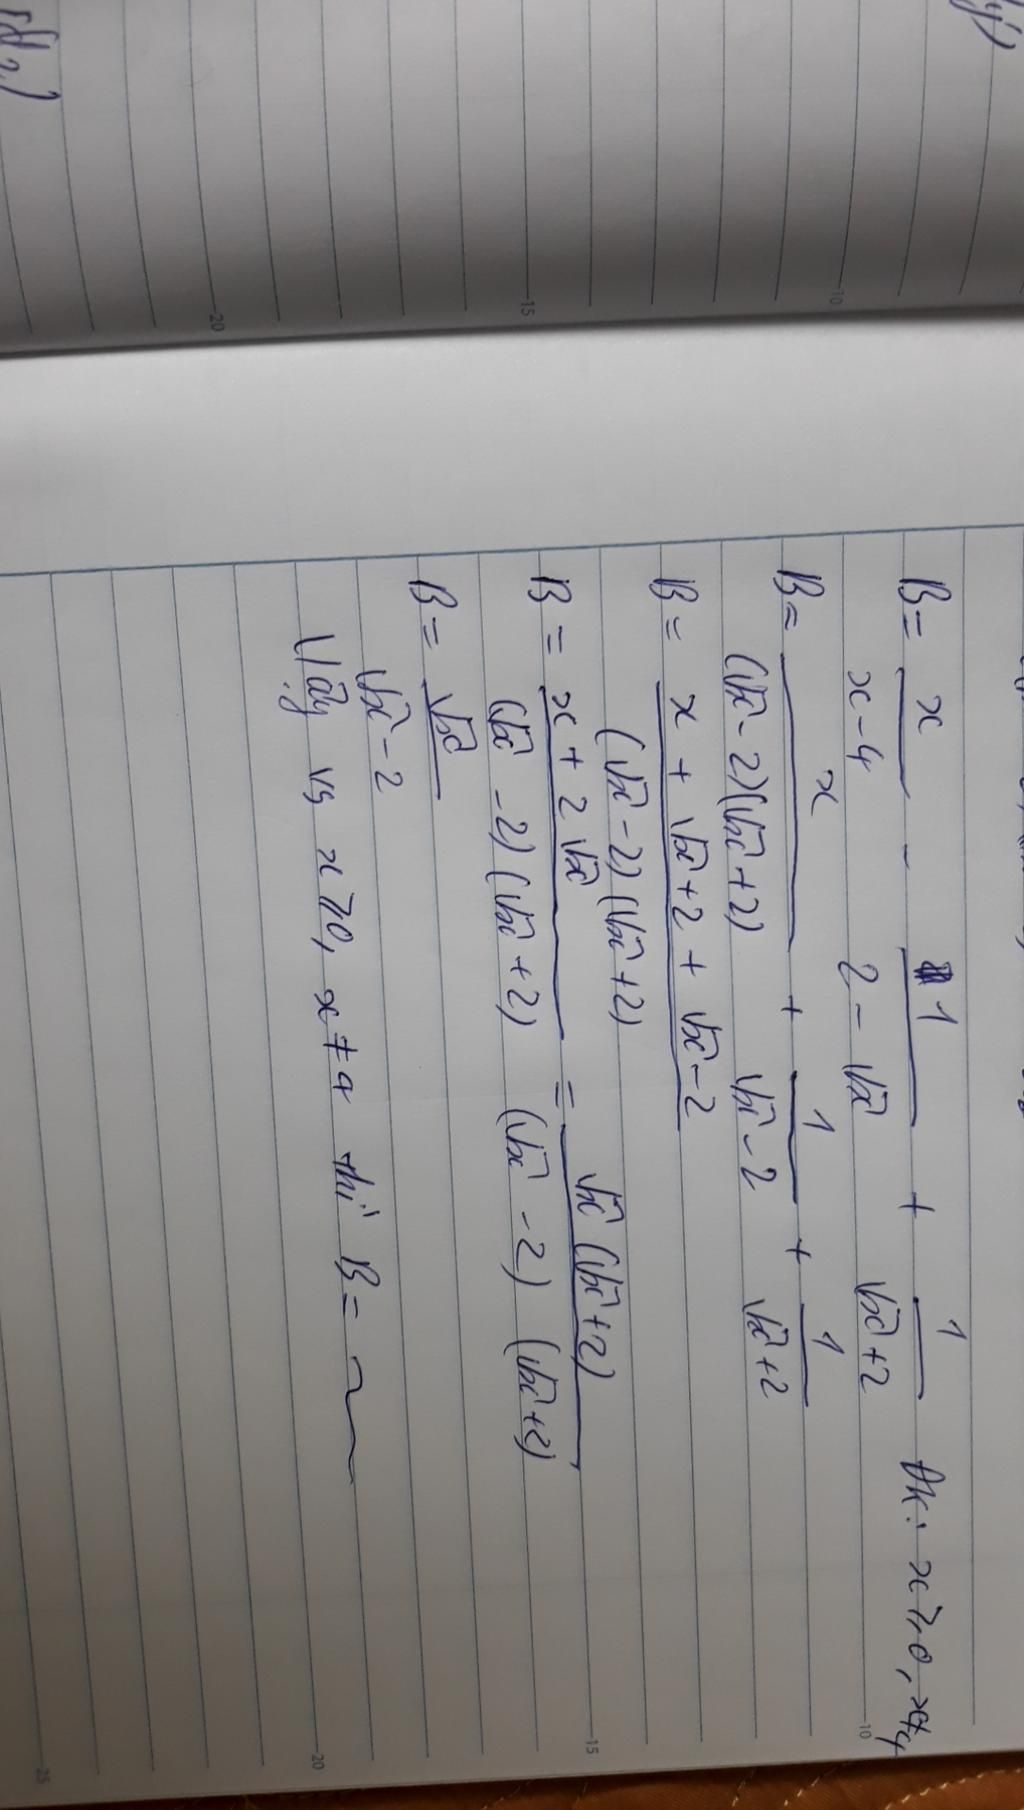 B = x/(x-4) - 1/(2-√x) + 1/(√x+2) ĐK: x ≥ 0, x ≠ 4
B = x/((√x-2)(√x+2)) + 1/(√x-2) + 1/(√x+2)
B = (x + √x+2 + √x-2)/((√x-2)(√x+2))
B = (x + 2√x)/((√x-2)(√x+2)) = (√x(√x+2))/((√x-2)(√x+2))
B = √x/(√x-2)
Vậy vs x ≥ 0, x ≠ 4 thì B = ~
10
15
20
10
15
20
25